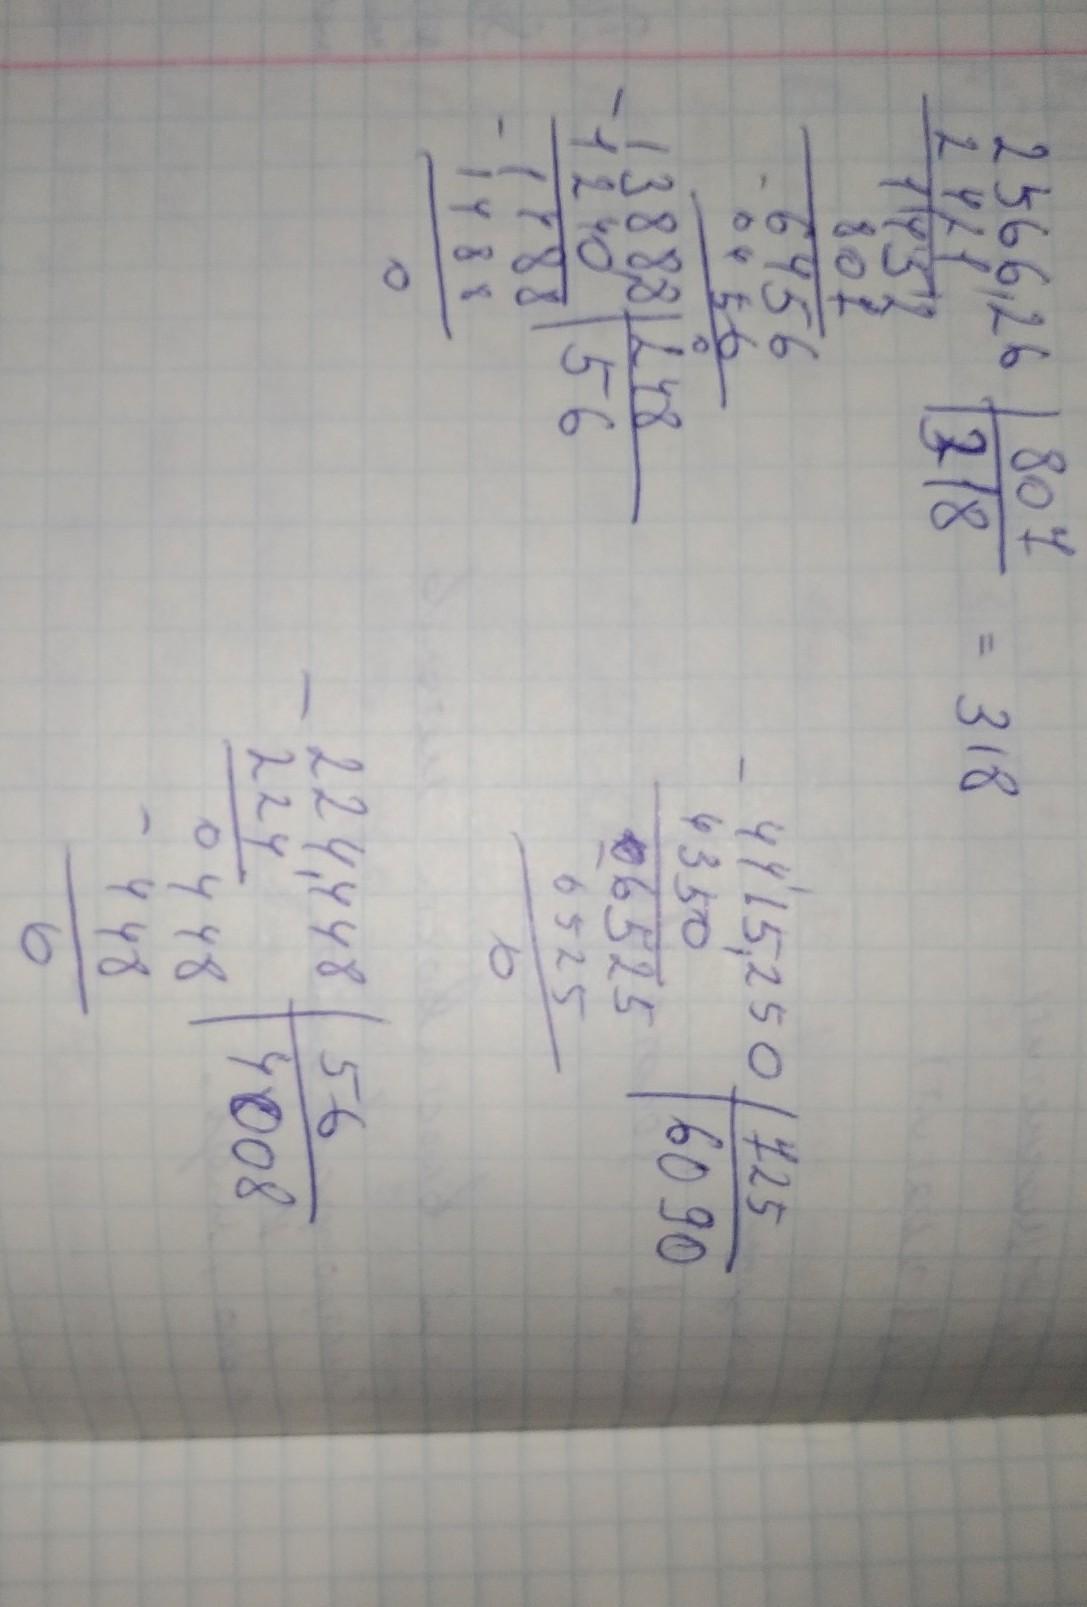 2566,26 | 807
2421 | 318 = 318
1452
807
- 6456
6456
0
- 1388,8 | 248
1240 | 56
- 1488
1488
0
- 4415,250 | 725
4350 | 6090
- 6525
6525
0
- 224,448 | 56
224 | 4008
0448
- 448
0